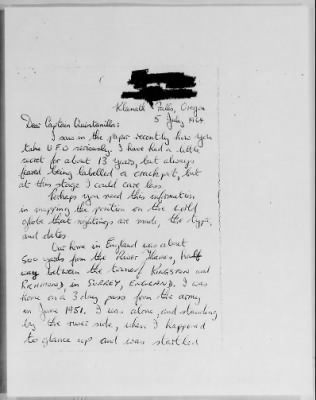 Klamath Falls, Oregon
5 July 1964
Dear Captain Quintanilla:
I saw in the paper recently how you
take U F O seriously. I have had a little
secret for about 13 years, but always
feared being labelled a crackpot, but
at this stage I could care less.
Perhaps you need this information
in mapping the position on the world
globe that sightings are made, the type,
and dates.
Our home in England was about
500 yards from the River Thames, half
way between the towns of KINGSTON and
RICHMOND, in SURREY, ENGLAND. I was
home on a 3 day pass from the army
in June 1951. I was alone, and standing
by the river side, when I happened
to glance up and was startled